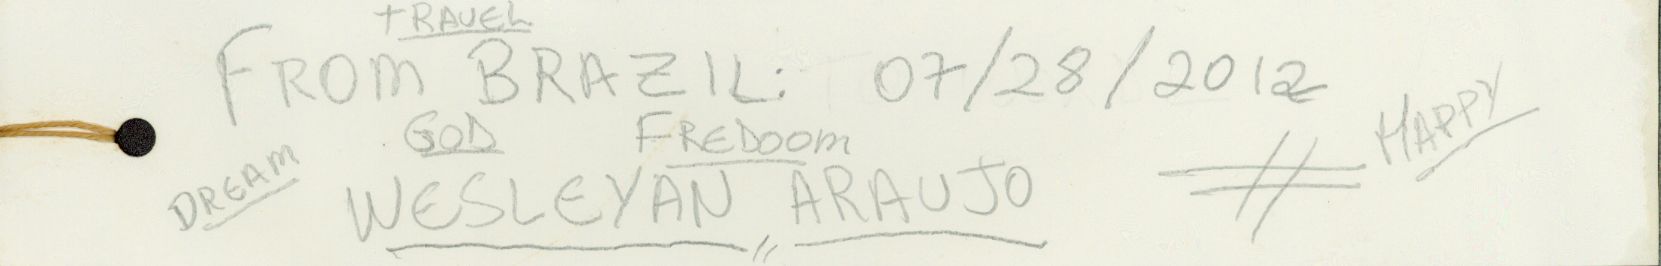 TRAVEL
FROM BRAZIL: 07/28/2012
HAPPY
GOD FREDOOM
DREAM
WESLEYAN ARAUJO